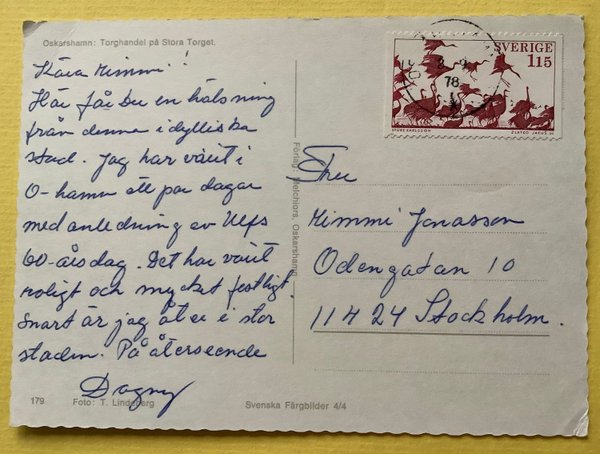 Oskarshamn: Torghandel på Stora Torget.
Kära Mimmi!
Här får Du en hälsning
från denna idylliska
stad. Jag har varit i
O-hamn ett par dagar
med anledning av Ulfs
60-årsdag. Det har varit
roligt och mycket festligt.
Snart är jag åter i stor
staden. På återseende
Dagny
179 Foto: T. Lindeberg
Svenska Färgbilder 4/4
Förlag: Melchiors, Oskarshamn
SVERIGE
115
78
STURE KARLSSON ZLATKO JAKUS SC
Fru
Mimmi Jonasson
Odengatan 10
114 24 Stockholm.